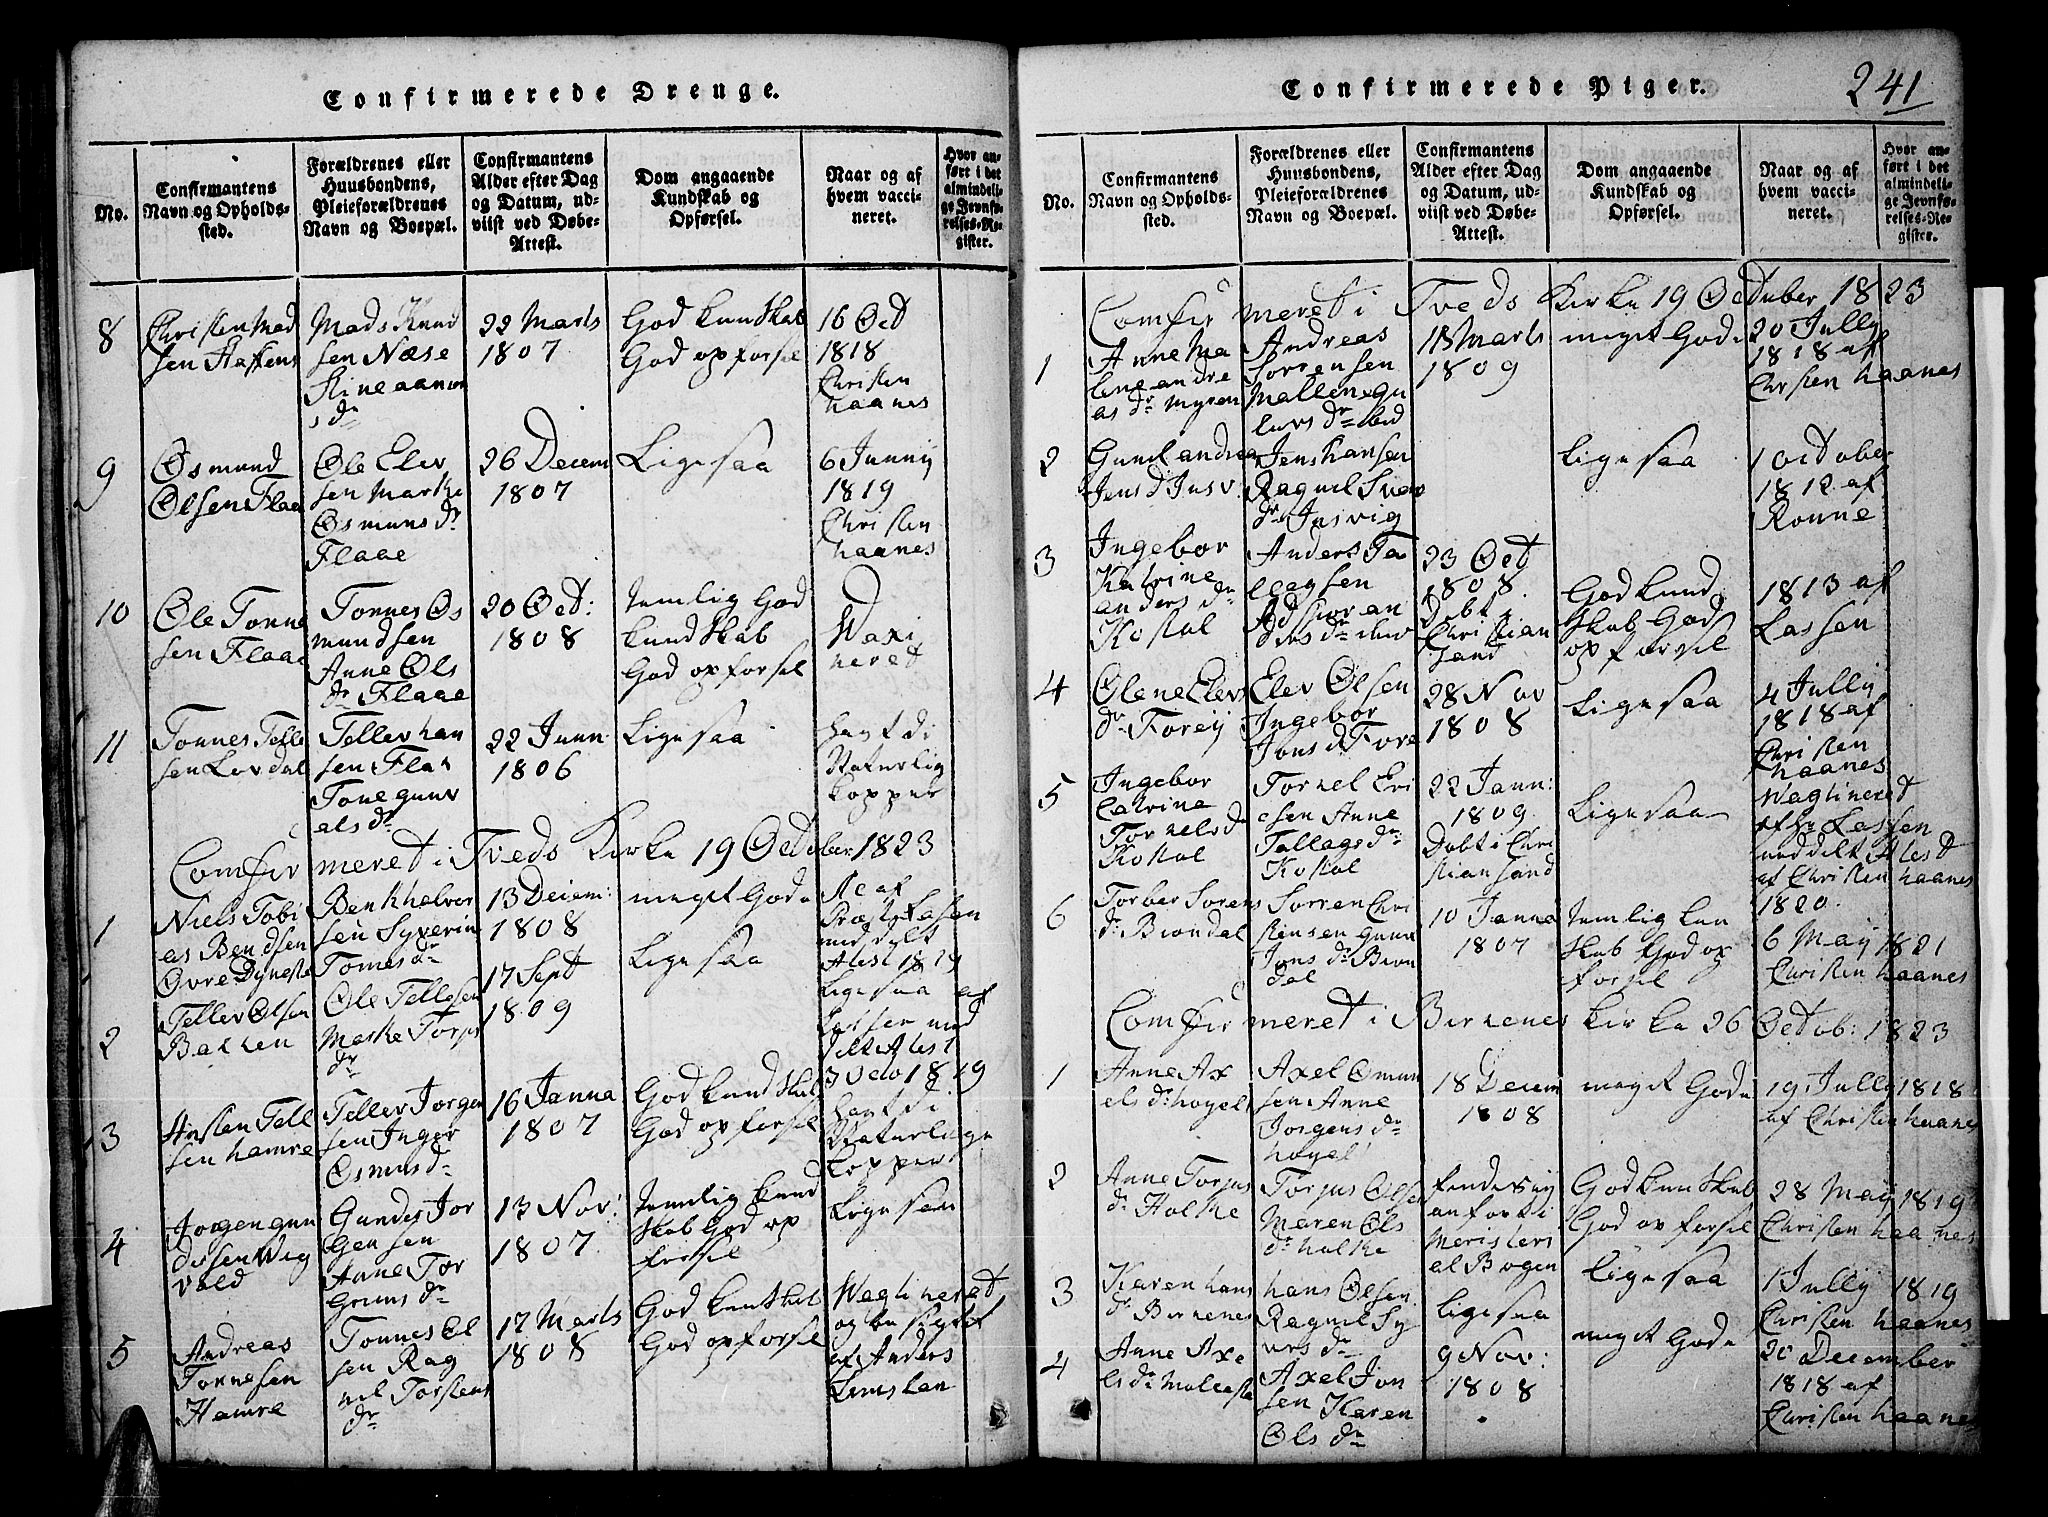 Confirmerede Drenge.
No.
Confirmantens
Navn og Opholds-
sted.
Forældrenes eller
Huusbondens,
Pleieforældrenes
Navn og Boepæl.
Confirmantens
Alder efter Dag
og Datum, ud-
viist ved Døbe-
Attest.
Dom angaaende
Kundskab og
Opførsel.
Naar og af
hvem vacci-
neret.
Hvor an-
ført i det
almindeli-
ge Jevnfø-
relses-Re-
gister.
8
Christen Mad
sen
Mads Knud
sen Næse
Stine aanon
s dr
22 Marts
1807
God kunskab
God opforsel
16 Oct
1818
Christen
haanes
9
Osmund
Olsen Flaa
Ole Elev
sen Marthe
Osmuns dr
Flaae
26 Decem
1807
Ligesaa
6 Junny
1819
Christen
haanes
10
Ole Tonne
sen Flaae
Tonnes Os
mundsen
Anne Ols
dr Flaae
20 Oct:
1808
temlig God
kundskab
God opforsel
Waxi
neret
11
Tonnes Telle
sen Lovdal
Tellev han
sen Flaa
Tone gunv
als dr
22 Junn
1806
Ligesaa
havt di
Naturlig
kopper
Comfirmeret i Tveds Kirke 19 October 1823
1
Niels Tobi
as Bendsen
Ovre Dyneste
Benk halvor
sen Syverin
Tomes dr
13 Deiem:
1808
meget Gode
Ae af
Præst Lasen
med delt
Atest 1819
2
Tellev Olsen
Bakken
Ole Tellesen
Marthe Torjs
dr
17 Sept
1809
Ligesaa
Ligesaa af
Lassen med
delt Atest
3 Octo 1819
3
Ansten Tell
sen hamre
Tellev Jorgen
sen Inger
Osmus dr
16 Janna
1807
God kundskab
God opforsel
havt di
Naturlige
kopper
4
Jorgen gun
dersen Wig
vold
Gunder Jor
Gensen
Anne Tor
Grims dr
13 Nov:
1807
temlig kund
skab God op
forsel
Ligesaa
5
Andreas
Tonnesen
Hamre
Tonnes Ol
sen Rag
nil Torstens
dr
17 Marts
1808
God kunskab
God opforsel
Wagtineret
og besigtet
af Anders
Confirmerede Piger.
241
No.
Confirmantens
Navn og Opholds-
sted.
Forældrenes eller
Huusbondens,
Pleieforældrenes
Navn og Boepæl.
Confirmantens
Alder efter Dag
og Datum, ud-
viist ved Døbe-
Attest.
Dom angaaende
Kundskab og
Opførsel.
Naar og af
hvem vacci-
neret.
Hvor an-
ført i det
almindeli-
ge Jevnfø-
relses-Re-
gister.
Comfirmeret i Tveds Kirke 19 October 1823
1
Anne Ma
lene andre
as dr Myren
Andreas
Sorrensen
Mallene gu
Marts
1809
meget Gode
20 Jully
1818 af
Christen haanes
2
Gunil andrea
Jens d Jusv
Jens hansen
Ragnil Sven
dr Jusvig
Ligesaa
1 October
1812 af
Ronne
3
Ingebor
Katrine
anders dr
Kostol
Anders Ta
llagsen
23 Oct
1808.
Dobt i
Christian
sand
God kund
skab God
opforsel
1813 af
Lassen
4
Olene Elevs
dr Forey
Elev Olsen
Ingebor
Jons d Fore
28 Nov
1808
Ligesaa
4 Jully
1818 af
Christen
haanes
5
Ingebor
Catrine
Torkels d
Kostol
Torkel Eri
csen Anne
Tallags dr
Kostol
22 Jann:
1809.
Dobt i Chri
stian sand
Ligesaa
Wagtineret
af Hr Lassen
meddelt Atest
af Christen haanes
1820.
6
Torber Sorens
dr Birondal
Sorren Chri
stensen Gunn
Jons dr Biron
dal
10 Janna
1807
temlig kun
skab God op
forsel
6 May 1821
Christen haanes
Comfirmeret i Birkenes Kirke 26 Octob: 1823
1
Anne Ax
els dr hogel
Axel Omun
sen Anne
Jorgens dr
hogel
18 Deiem
1808
meget Gode
19 Jully 1818
af Christen haanes
2
Anne Torjus
dr Holthe
Torjus Olsen
Maren Ols
dr holthe
findes ey
anfort i
Ministeri
el Bogen
God kunskab
God opforsel
28 May 1819
Christen haanes
3
Karen hans
dr Birkenes
hans Olsen
Ragnil Sy
vers dr
Ligesaa
Ligesaa
1 Jully 1819
Christen haanes
4
Anne Axe
ls dr Molleste
Axel Jon
sen Karen
Ols dr
9 Nov:
1808
meget Gode
20 December
1818 af
Christen haanes